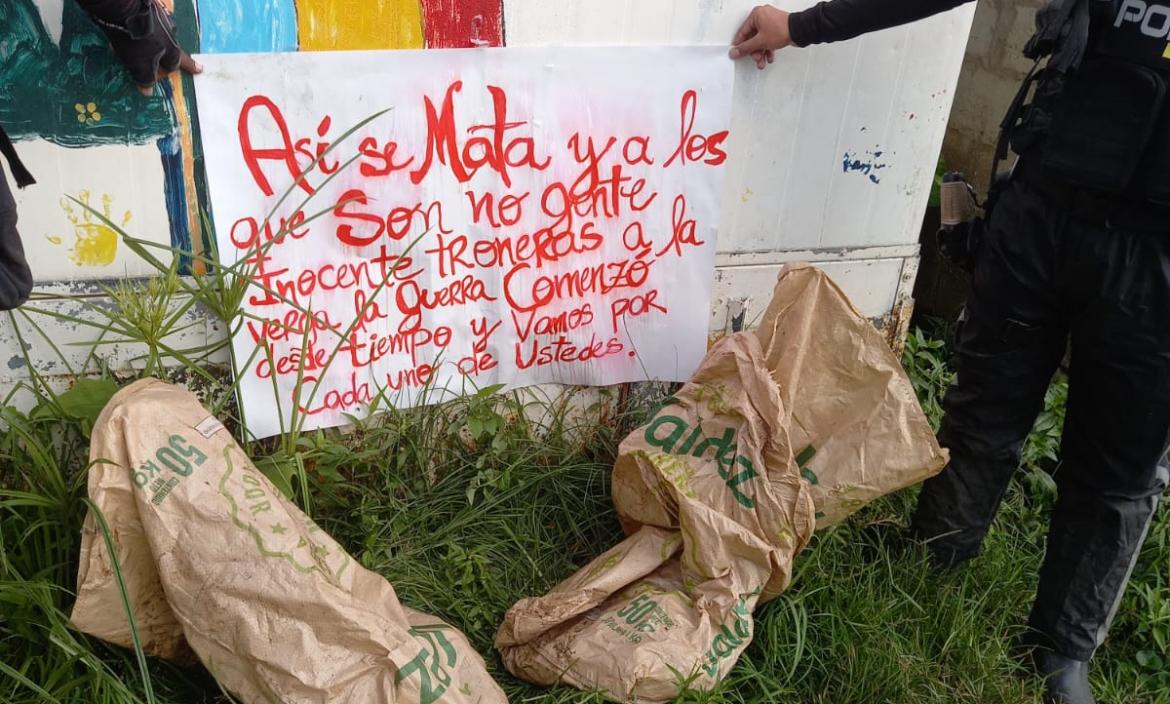 PO
Así se Mata y a los
que Son no gente
Inocente troneras a la
verga la guerra Comenzó
desde tiempo y Vamos por
Cada uno de Ustedes.
50
KG
50
Valdez